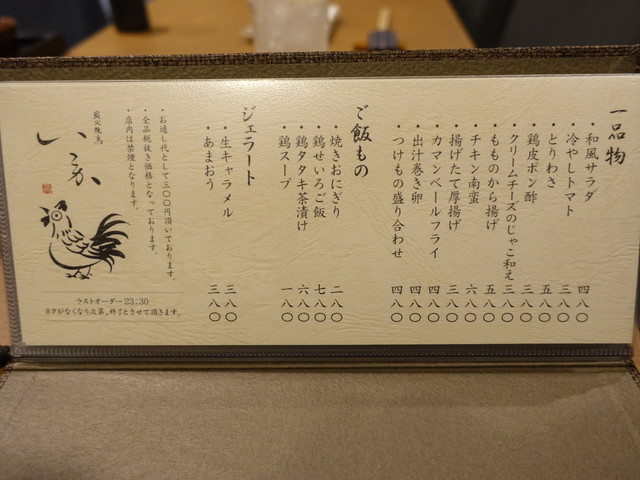 一品物
・和風サラダ 四八〇
・冷やしトマト 三八〇
・とりわさ 五八〇
・鶏皮ポン酢 三八〇
・クリームチーズのじゃこ和え 三八〇
・もものから揚げ 五八〇
・チキン南蛮 六八〇
・揚げたて厚揚げ 三八〇
・カマンベールフライ 四八〇
・出汁巻き卵 四八〇
・つけもの盛り合わせ 四八〇
ご飯もの
・焼きおにぎり 二八〇
・鶏せいろご飯 七八〇
・鶏タタキ茶漬け 六八〇
・鶏スープ 一八〇
ジェラート
・生キャラメル 三八〇
・あまおう 三八〇
・お通し代として三〇〇円頂いております。
・全品税抜き価格となっております。
・店内は禁煙となります。
炭火焼鳥
ラストオーダー23:30
ネタがなくなり次第、終了とさせて頂きます。